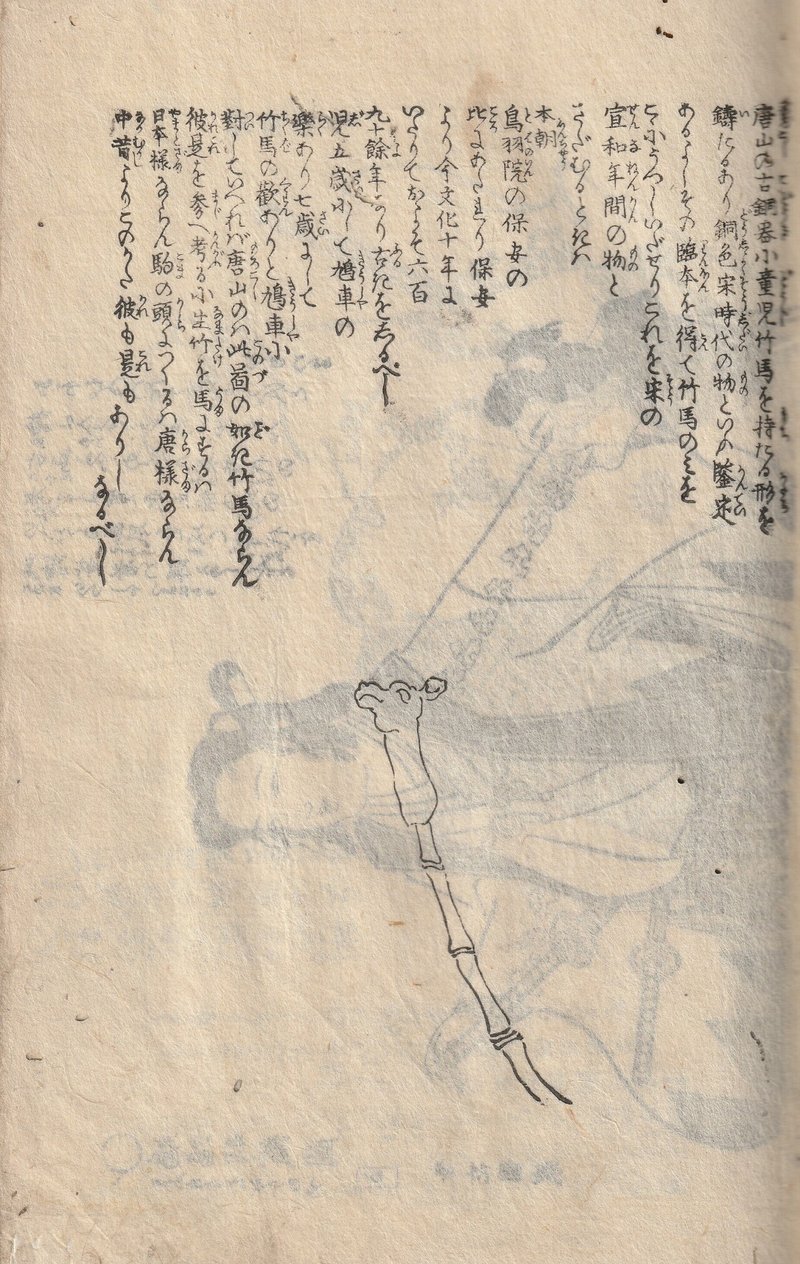 唐山の古銅器小童児竹馬を持たる形を
鋳たるあり銅色宋時代の物といふ鑒定
あるよしその臨本を得て竹馬のミを
こゝにうつしいだせりこれを宋の
宣和年間の物と
さだむるときハ
本朝
鳥羽院の保安の
比にあたれり保安
より今文化十年に
いたりておよそ六百
九十餘年なり古きをしるべし
児五歳にして鳩車の
樂あり七歳にして
竹馬の歡ありと鳩車に
對していへれバ唐山のハ此啚の如き竹馬ならん
彼是を参へ考るに生竹を馬にするハ
日本様ならん駒の頭をつくるハ唐様ならん
中昔よりこのかた彼も是もありし
なるべし